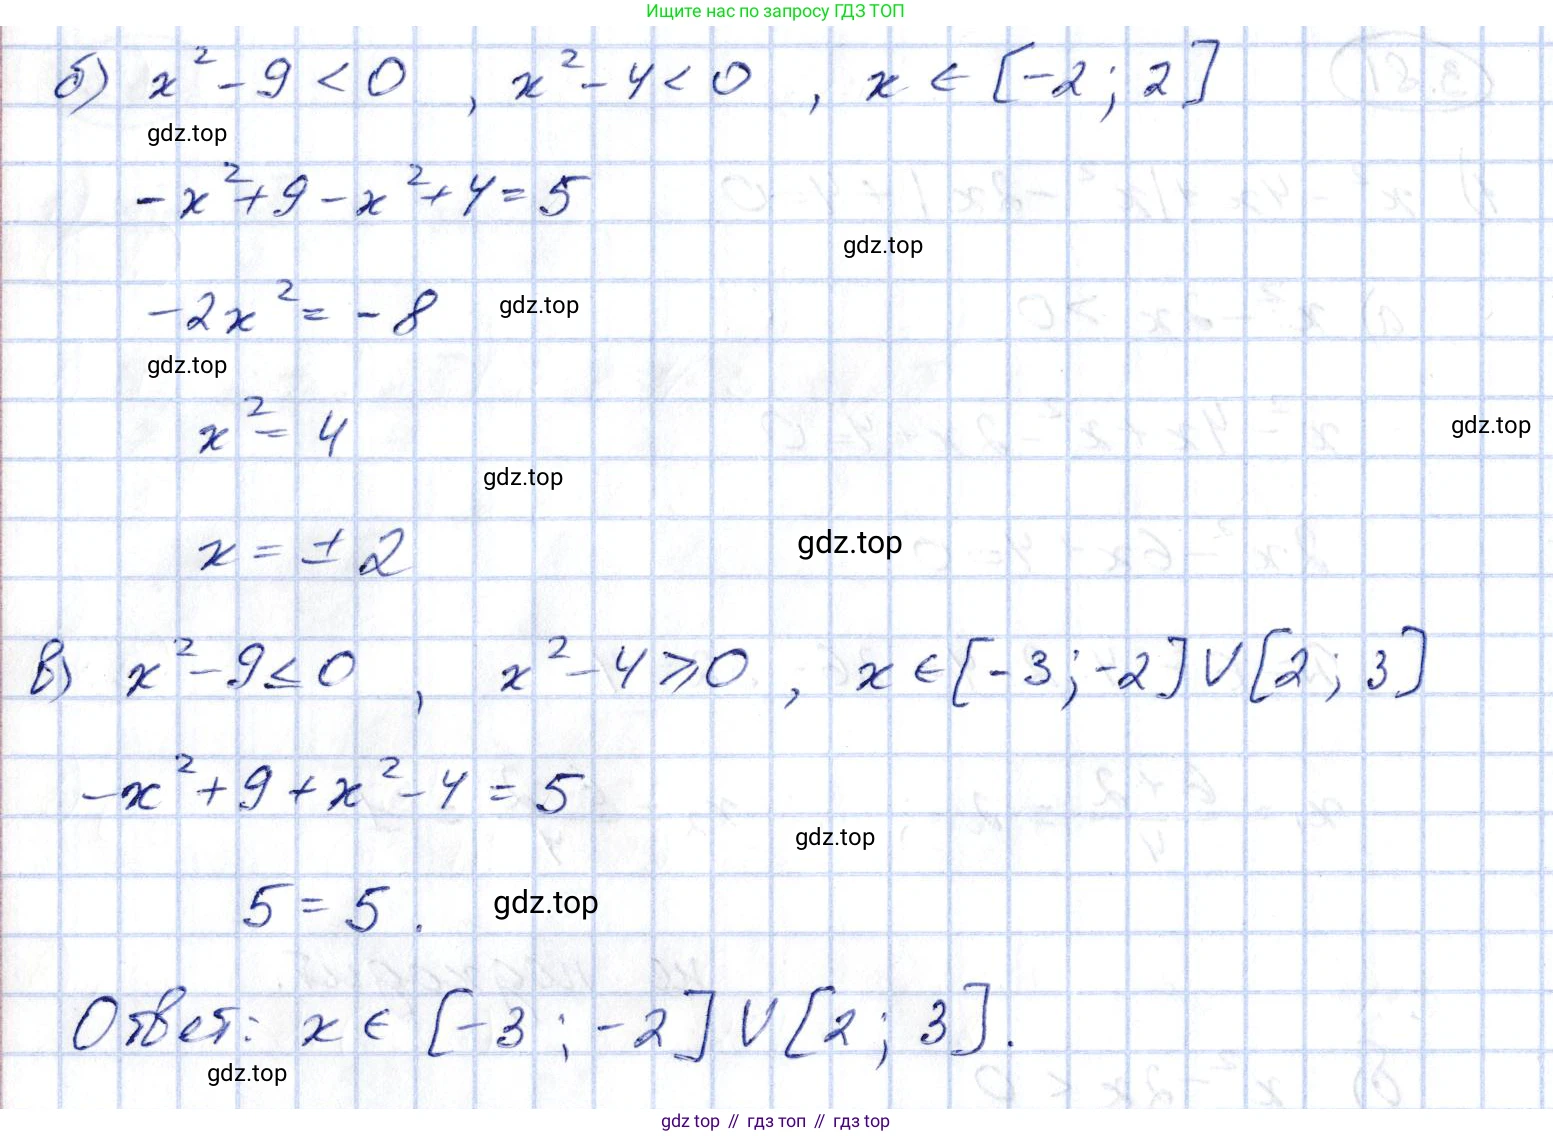 Ищите нас по запросу ГДЗ ТОП
б) x² - 9 < 0 , x² - 4 < 0 , x ∈ [-2 ; 2]
gdz.top
-x² + 9 - x² + 4 = 5
gdz.top
-2x² = -8
gdz.top
gdz.top
x² = 4
gdz.top
gdz.top
x = ± 2
gdz.top
в) x² - 9 ≤ 0 , x² - 4 ⩾ 0 , x ∈ [-3 ; -2] ∪ [2 ; 3]
-x² + 9 + x² - 4 = 5
gdz.top
5 = 5 .
gdz.top
Ответ: x ∈ [-3 ; -2] ∪ [2 ; 3].
gdz.top
gdz top // гдз топ // гдз.top